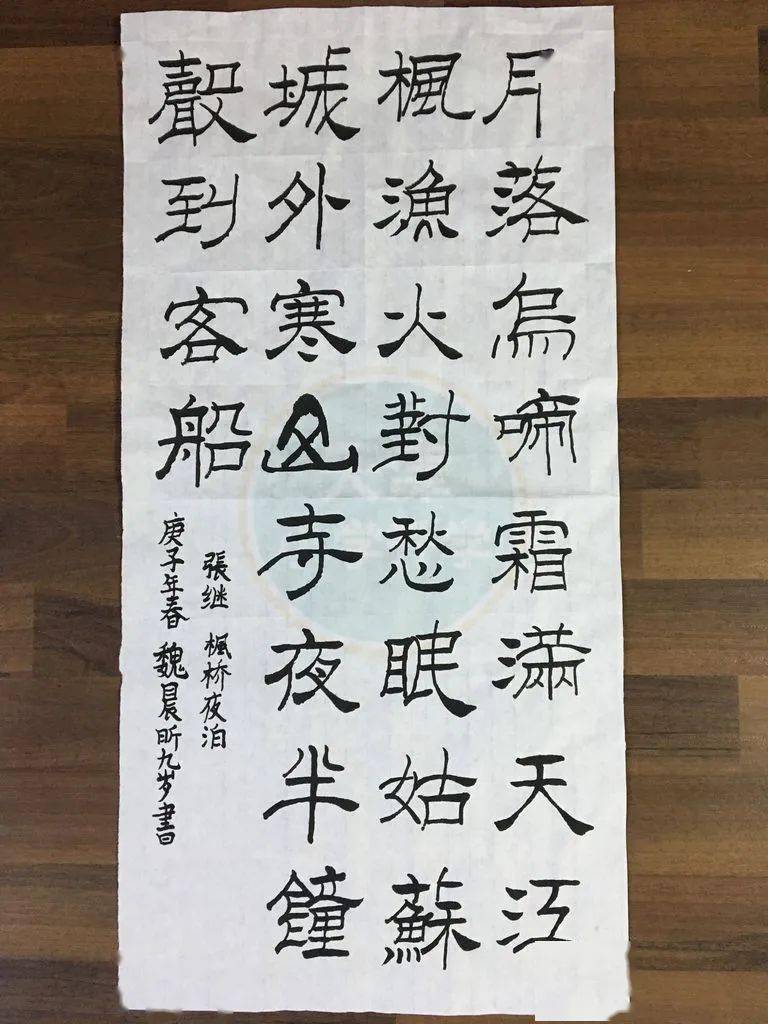 月落烏啼霜滿天江
楓漁火對愁眠姑蘇
城外寒山寺夜半鐘
聲到客船
張继 楓桥夜泊
庚子年春 魏晨昕九岁書